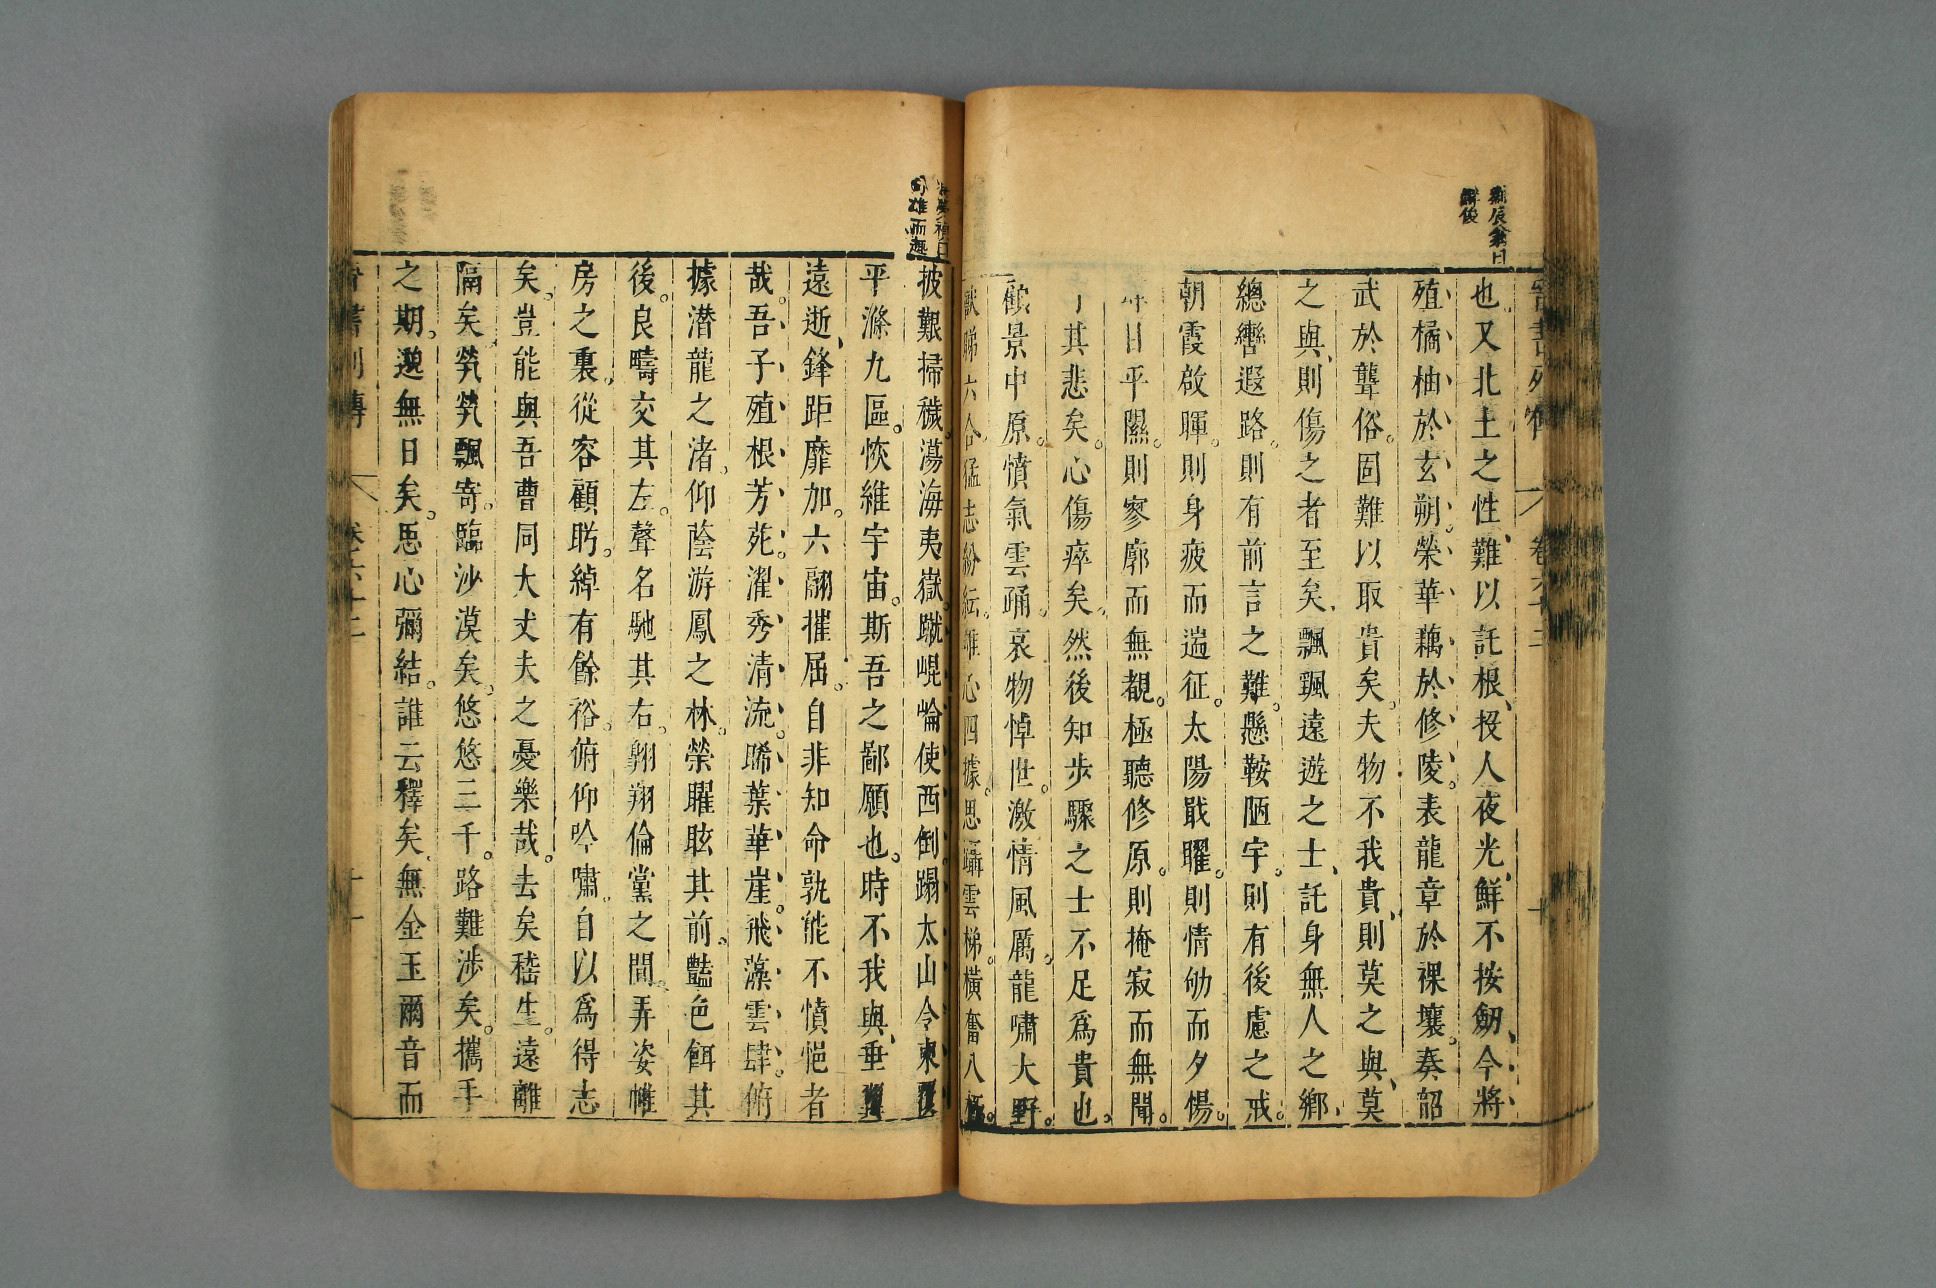 也又北土之性難以託根投人夜光鮮不按劒今將
殖橘柚於玄朔榮華藕於修陵表龍章於裸壤奏韶
武於聾俗固難以取貴矣夫物不我貴則莫之與莫
之與則傷之者至矣飄颻遠遊之士託身無人之鄉
總轡遐路則有前言之難懸鞍陋宇則有後慮之戒
朝霞啟暉則身疲而遄征太陽戢曜則情劬而夕惕
日平隰則寥廓而無覩極聽修原則掩寂而無聞
其悲矣心傷瘁矣然後知步驟之士不足爲貴也
顧景中原憤氣雲踊哀物悼世激情風厲龍嘯大野
獸睇六合猛志紛紜雄心四據思躡雲梯橫奮八極
披艱掃穢蕩海夷嶽蹴崐崘使西倒蹋太山令東覆
平滌九區恢維宇宙斯吾之鄙願也時不我與垂翼
遠逝鋒距靡加六翮摧屈自非知命孰能不憤悒者
哉吾子殖根芳苑濯秀清流晞葉華崖飛藻雲肆俯
據潛龍之渚仰蔭游鳳之林榮曜眩其前豔色餌其
後良疇交其左聲名馳其右翺翔倫黨之間弄姿帷
房之裏從容顧眄綽有餘裕俯仰吟嘯自以爲得志
矣豈能與吾曹同大丈夫之憂樂哉去矣嵇生遠離
隔矣煢煢飄寄臨沙漠矣悠悠三千路難涉矣攜手
之期邈無日矣思心彌結誰云釋矣無金玉爾音而